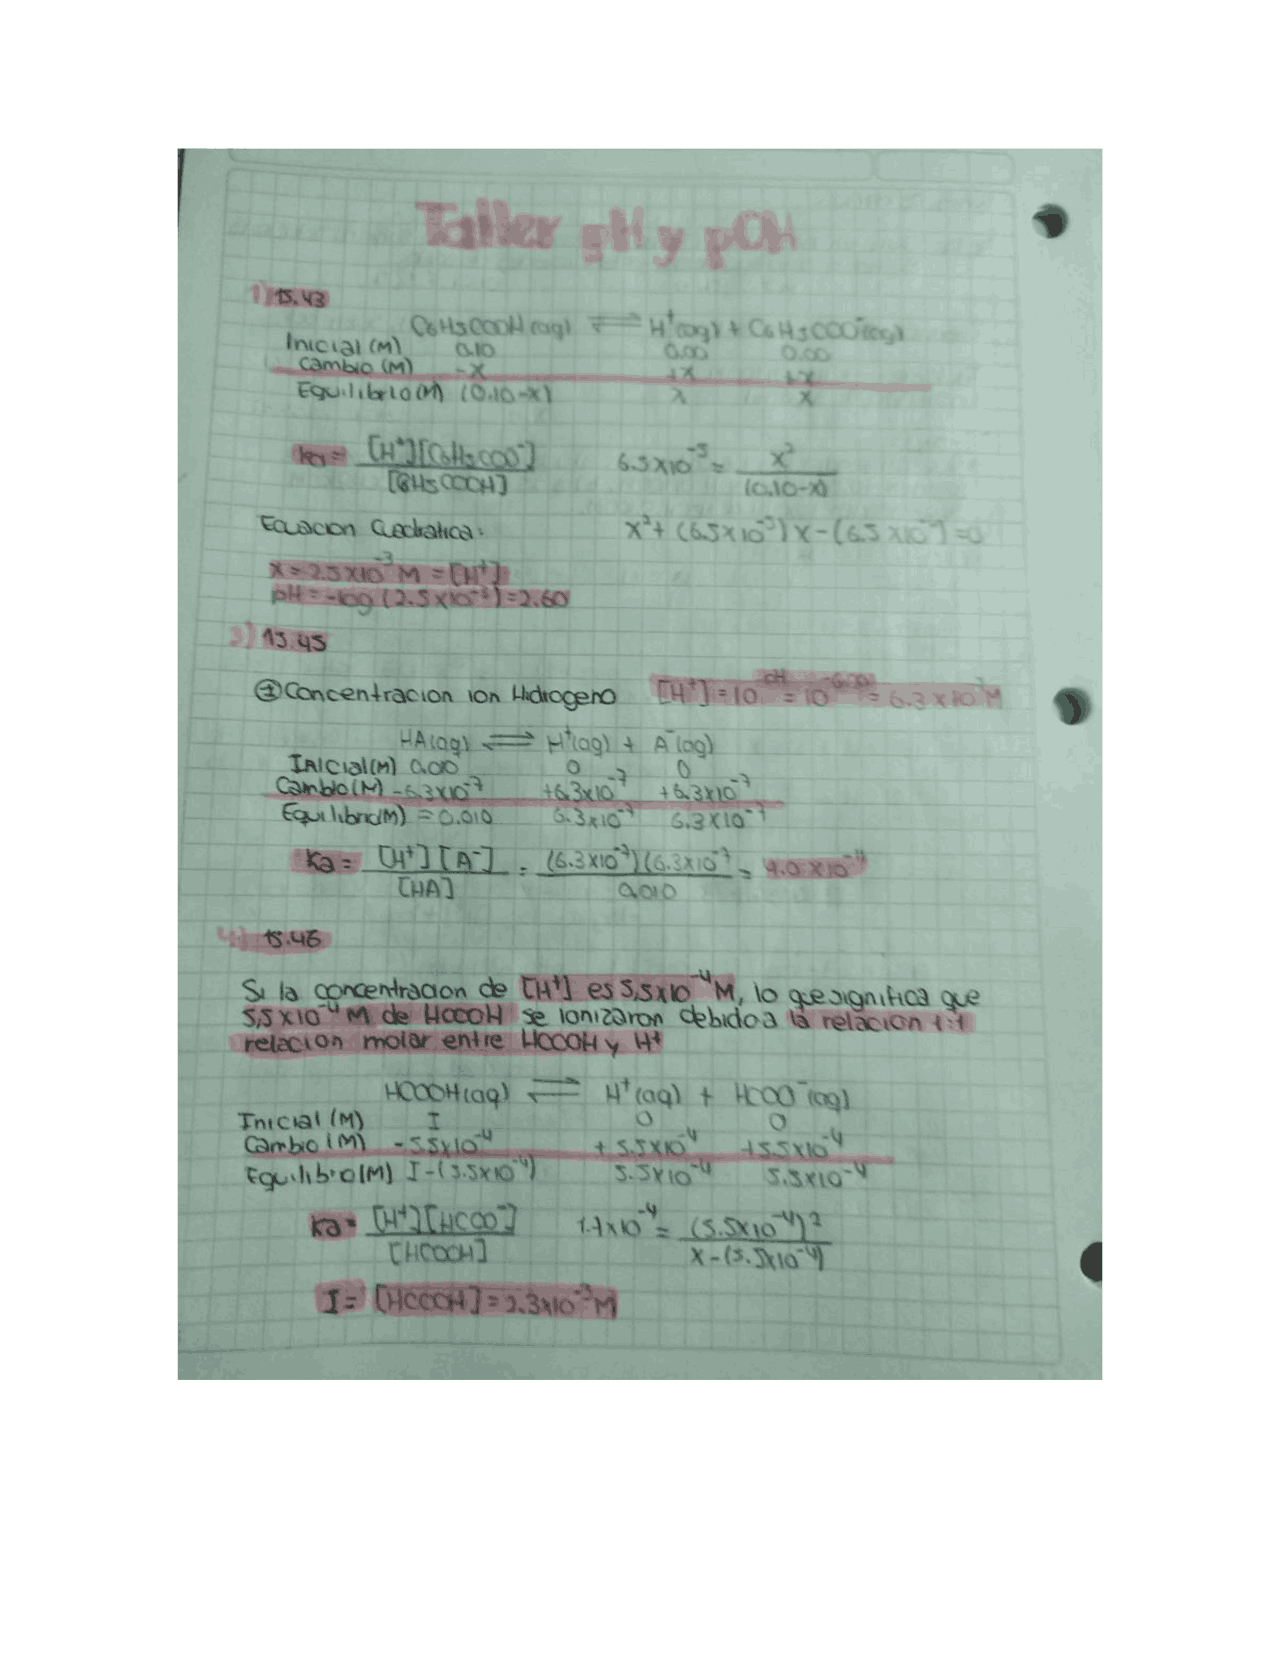 Taller pH y pOH
1) 15.43
C6H5COOH(aq) ⇌ H⁺(aq) + C6H5COO⁻(aq)
Inicial (M) 0.10 0.00 0.00
Cambio (M) -x +x +x
Equilibrio(M) (0.10-x) x x
Ka = [H⁺][C6H5COO⁻] / [C6H5COOH] 6.5x10⁻⁵ = x² / (0.10-x)
Ecuacion Cuadratica: x² + (6.5x10⁻⁵)x - (6.5x10⁻⁶) = 0
x = 2.5x10⁻³ M = [H⁺]
pH = -log (2.5x10⁻³) = 2.60
3) 15.45
① Concentracion ion Hidrogeno [H⁺] = 10⁻pH = 10⁻6.20 = 6.3x10⁻⁷M
HA(aq) ⇌ H⁺(aq) + A⁻(aq)
Inicial(M) 0.010 0 0
Cambio(M) -6.3x10⁻⁷ +6.3x10⁻⁷ +6.3x10⁻⁷
Equilibrio(M) ≈0.010 6.3x10⁻⁷ 6.3x10⁻⁷
Ka = [H⁺][A⁻] / [HA] = (6.3x10⁻⁷)(6.3x10⁻⁷ / 0.010 = 4.0x10⁻¹¹
4) 15.46
Si la concentracion de [H⁺] es 5,5x10⁻⁴M, lo que significa que
5,5x10⁻⁴M de HCOOH se ionizaron debido a la relacion 1:1
relacion molar entre HCOOH y H⁺
HCOOH(aq) ⇌ H⁺(aq) + HCOO⁻(aq)
Inicial (M) I 0 0
Cambio (M) -5.5x10⁻⁴ +5.5x10⁻⁴ +5.5x10⁻⁴
Equilibrio(M) I-(5.5x10⁻⁴) 5.5x10⁻⁴ 5.5x10⁻⁴
Ka = [H⁺][HCOO⁻] / [HCOOH] 1.7x10⁻⁴ = (5.5x10⁻⁴)² / x-(5.5x10⁻⁴)
I = [HCOOH] = 2.3x10⁻³M